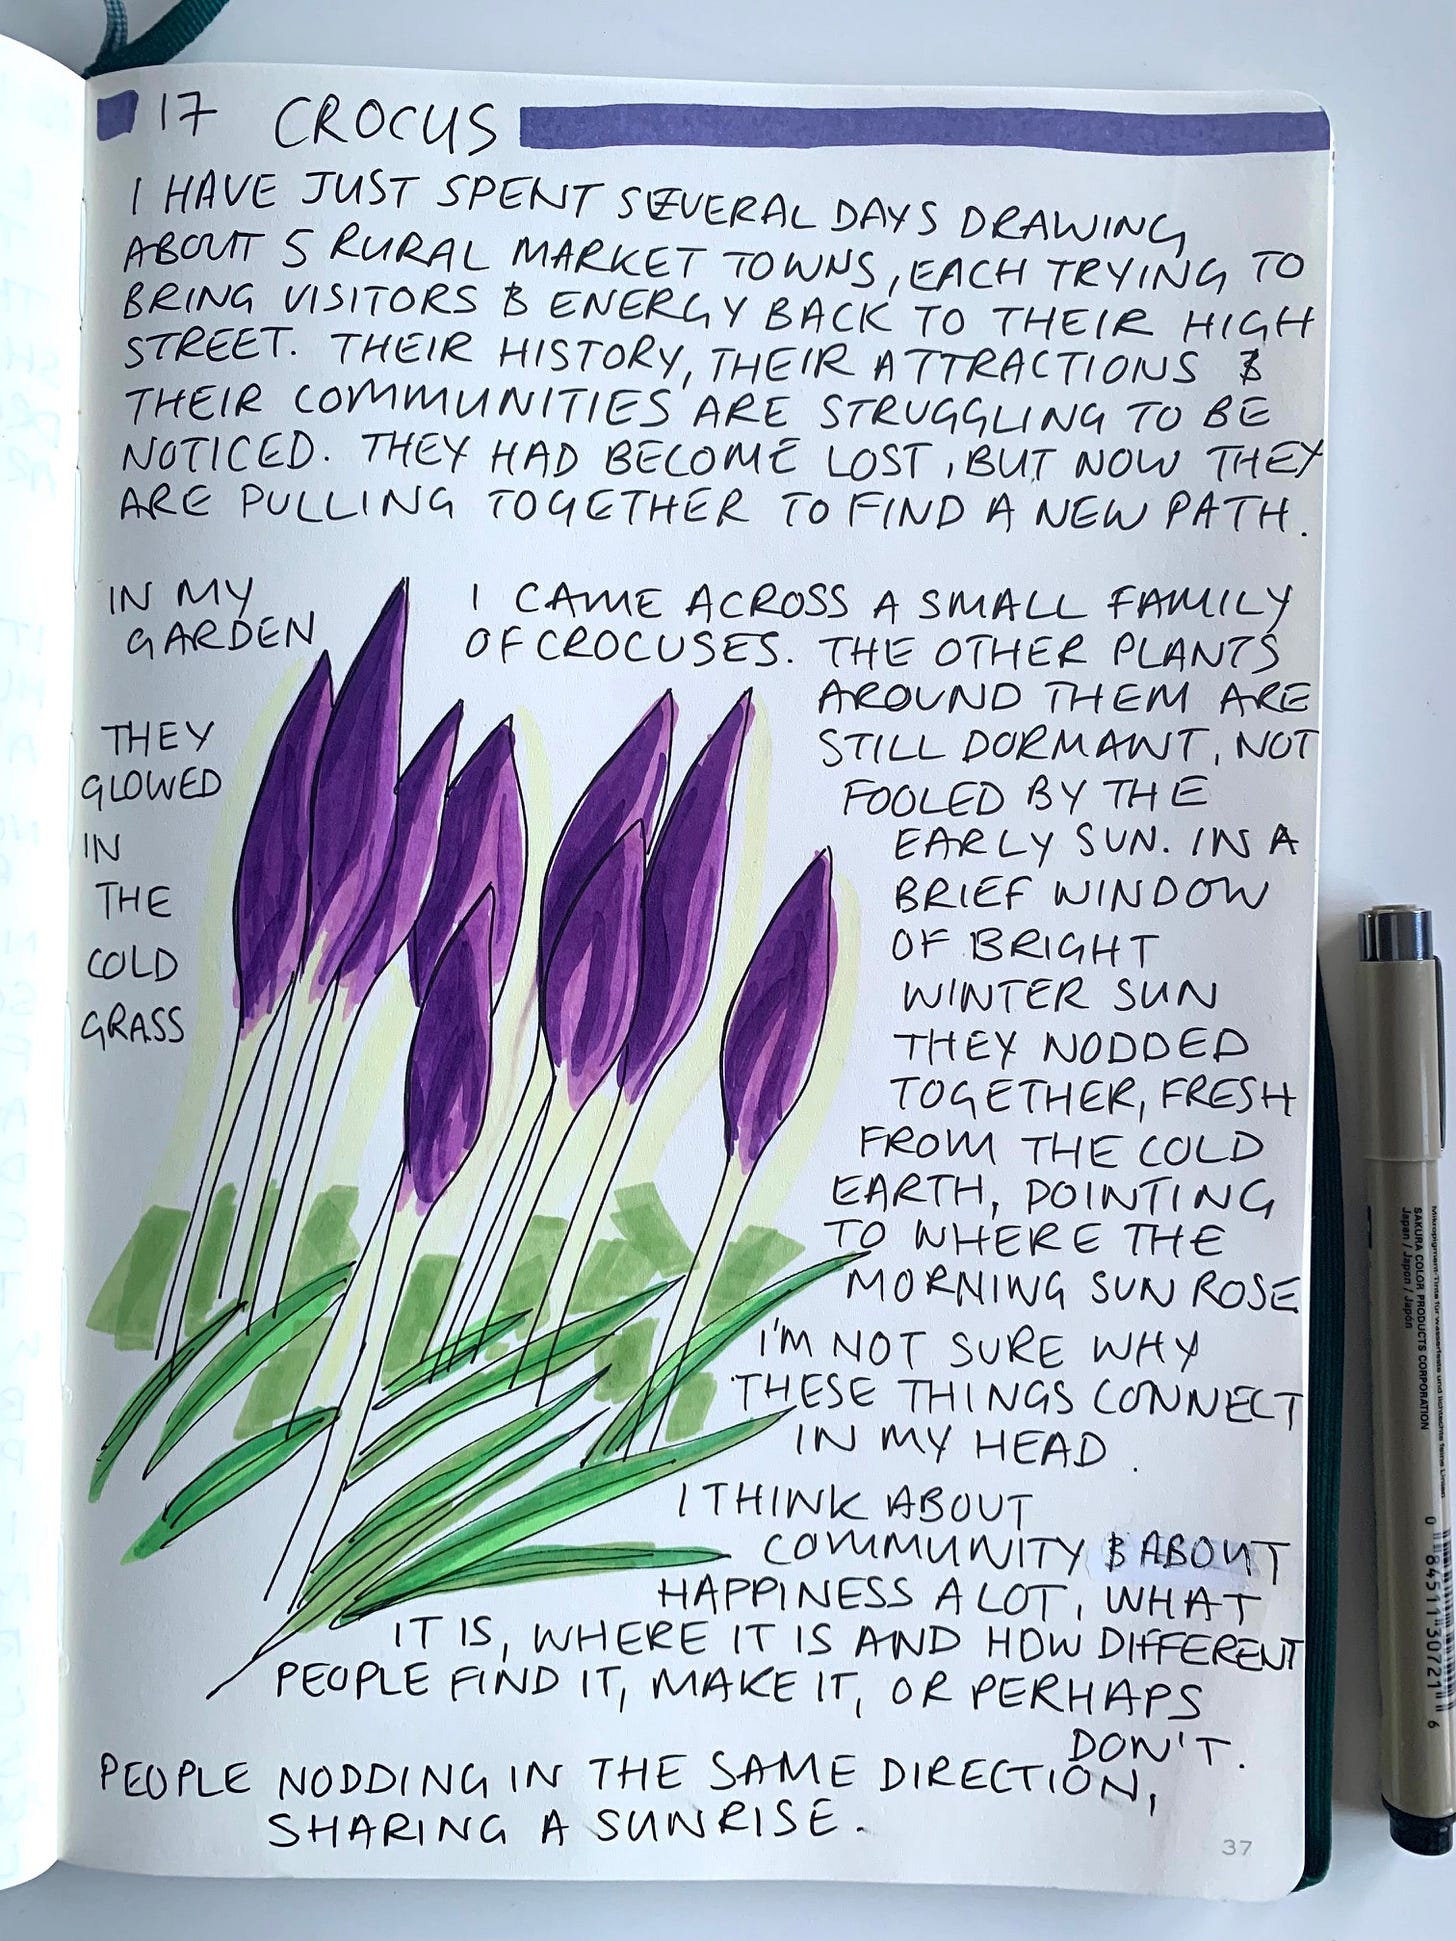 17 CROCUS
I HAVE JUST SPENT SEVERAL DAYS DRAWING
ABOUT 5 RURAL MARKET TOWNS, EACH TRYING TO
BRING VISITORS & ENERGY BACK TO THEIR HIGH
STREET. THEIR HISTORY, THEIR ATTRACTIONS &
THEIR COMMUNITIES ARE STRUGGLING TO BE
NOTICED. THEY HAD BECOME LOST, BUT NOW THEY
ARE PULLING TOGETHER TO FIND A NEW PATH.
IN MY
GARDEN
I CAME ACROSS A SMALL FAMILY
OF CROCUSES. THE OTHER PLANTS
AROUND THEM ARE
STILL DORMANT, NOT
FOOLED BY THE
EARLY SUN. IN A
BRIEF WINDOW
OF BRIGHT
WINTER SUN
THEY NODDED
TOGETHER, FRESH
FROM THE COLD
EARTH, POINTING
TO WHERE THE
MORNING SUN ROSE
THEY
GLOWED
IN
THE
COLD
GRASS
I'M NOT SURE WHY
THESE THINGS CONNECT
IN MY HEAD.
I THINK ABOUT
COMMUNITY & ABOUT
HAPPINESS A LOT, WHAT
IT IS, WHERE IT IS AND HOW DIFFERENT
PEOPLE FIND IT, MAKE IT, OR PERHAPS
DON'T.
PEOPLE NODDING IN THE SAME DIRECTION,
SHARING A SUNRISE.
37
SAKURA COLOR PRODUCTS CORPORATION
Japan / Japon / Japón
0 84511 30721 6